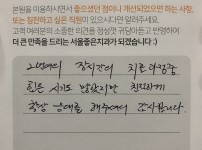 본원을 이용하시면서 좋으셨던 점이나 개선되었으면 하는 사항,
또는 칭찬하고 싶은 직원이 있으시다면 알려주세요.
고객 여러분의 소중한 의견을 정성껏 귀담아듣고 반영하여
더 큰 만족을 드리는 서울좋은치과가 되겠습니다 :)
2년여의 장시간의 치료 과정중
힘든 시기도 많았지만 친절하게
항상 응대를 해주셔서 감사합니다.